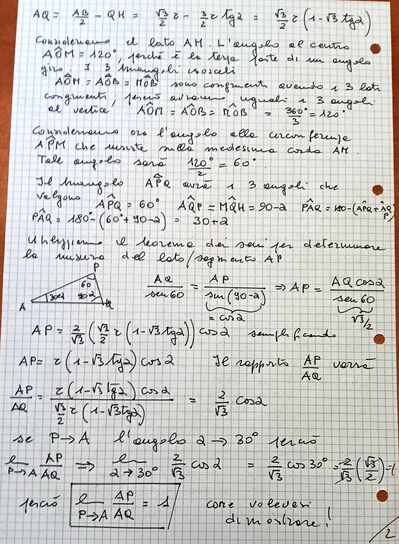 AQ = AB/2 - QH = √3/2 r - 3/2 r tg2 = √3/2 r (1-√3 tg2)
Consideriamo il lato AM. L'angolo al centro
AÔM = 120°, perché è la terza parte di un angolo
giro. I 3 triangoli isosceli
AÔM = AÔB = MÔB sono congruenti avendo i 3 lati
congruenti, perciò avranno uguali i 3 angoli
al vertice AÔM = AÔB = MÔB = 360°/3 = 120°
Consideriamo ora l'angolo alla circonferenza
AP̂M che insiste sulla medesima corda AM.
Tale angolo sarà 120°/2 = 60°
Il triangolo AP̂Q avrà i 3 angoli che
valgono AP̂Q = 60° AQ̂P = MQ̂H = 90-2 PÂQ = 180-(AP̂Q+AQ̂P)
PÂQ = 180°-(60+90-2) = 30+2
Utilizziamo il teorema dei seni per determinare
la misura del lato/segmento AP
P
60
A 30+2 90-2 Q
AQ/sen60 = AP/sin(90-2) ⇒ AP = AQ cos2/sen60
= cos2
√3/2
AP = 2/√3 (√3/2 r (1-√3 tg2)) cos2 semplificando
AP = r (1-√3 tg2) cos2 Il rapporto AP/AQ varrà
AP/AQ = r (1-√3 tg2) cos2 / √3/2 r (1-√3 tg2) = 2/√3 cos2
se P→A l'angolo 2→30° perciò
l P→A AP/AQ ⇒ l 2→30° 2/√3 cos2 = 2/√3 cos30° = 2/√3 (√3/2) = 1
perciò l P→A AP/AQ = 1 come volevasi
dimostrare!
/2